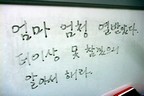 엄마 엄청 열받았다.
더이상 못 참겠으니
알아서 해라.